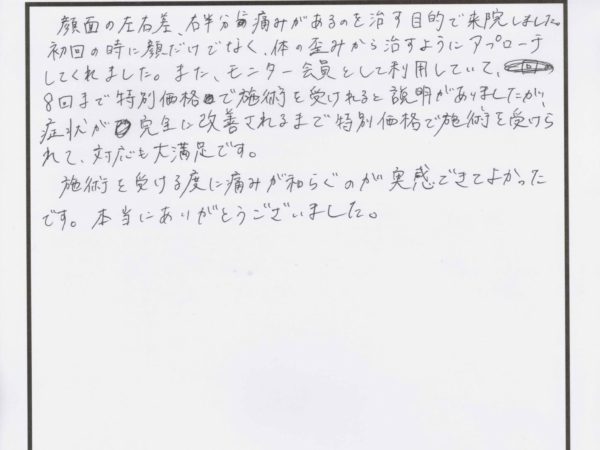 顔面の左右差、右半分に痛みがあるのを治す目的で来院しました。
初回の時に顔だけでなく、体の歪みから治すようにアプローチ
してくれました。また、モニター会員として利用していて、
8回まで特別価格で施術を受けれると説明がありましたが、
症状が完全に改善されるまで特別価格で施術を受けら
れて、対応も大満足です。
施術を受ける度に痛みが和らぐのが実感できてよかった
です。本当にありがとうございました。